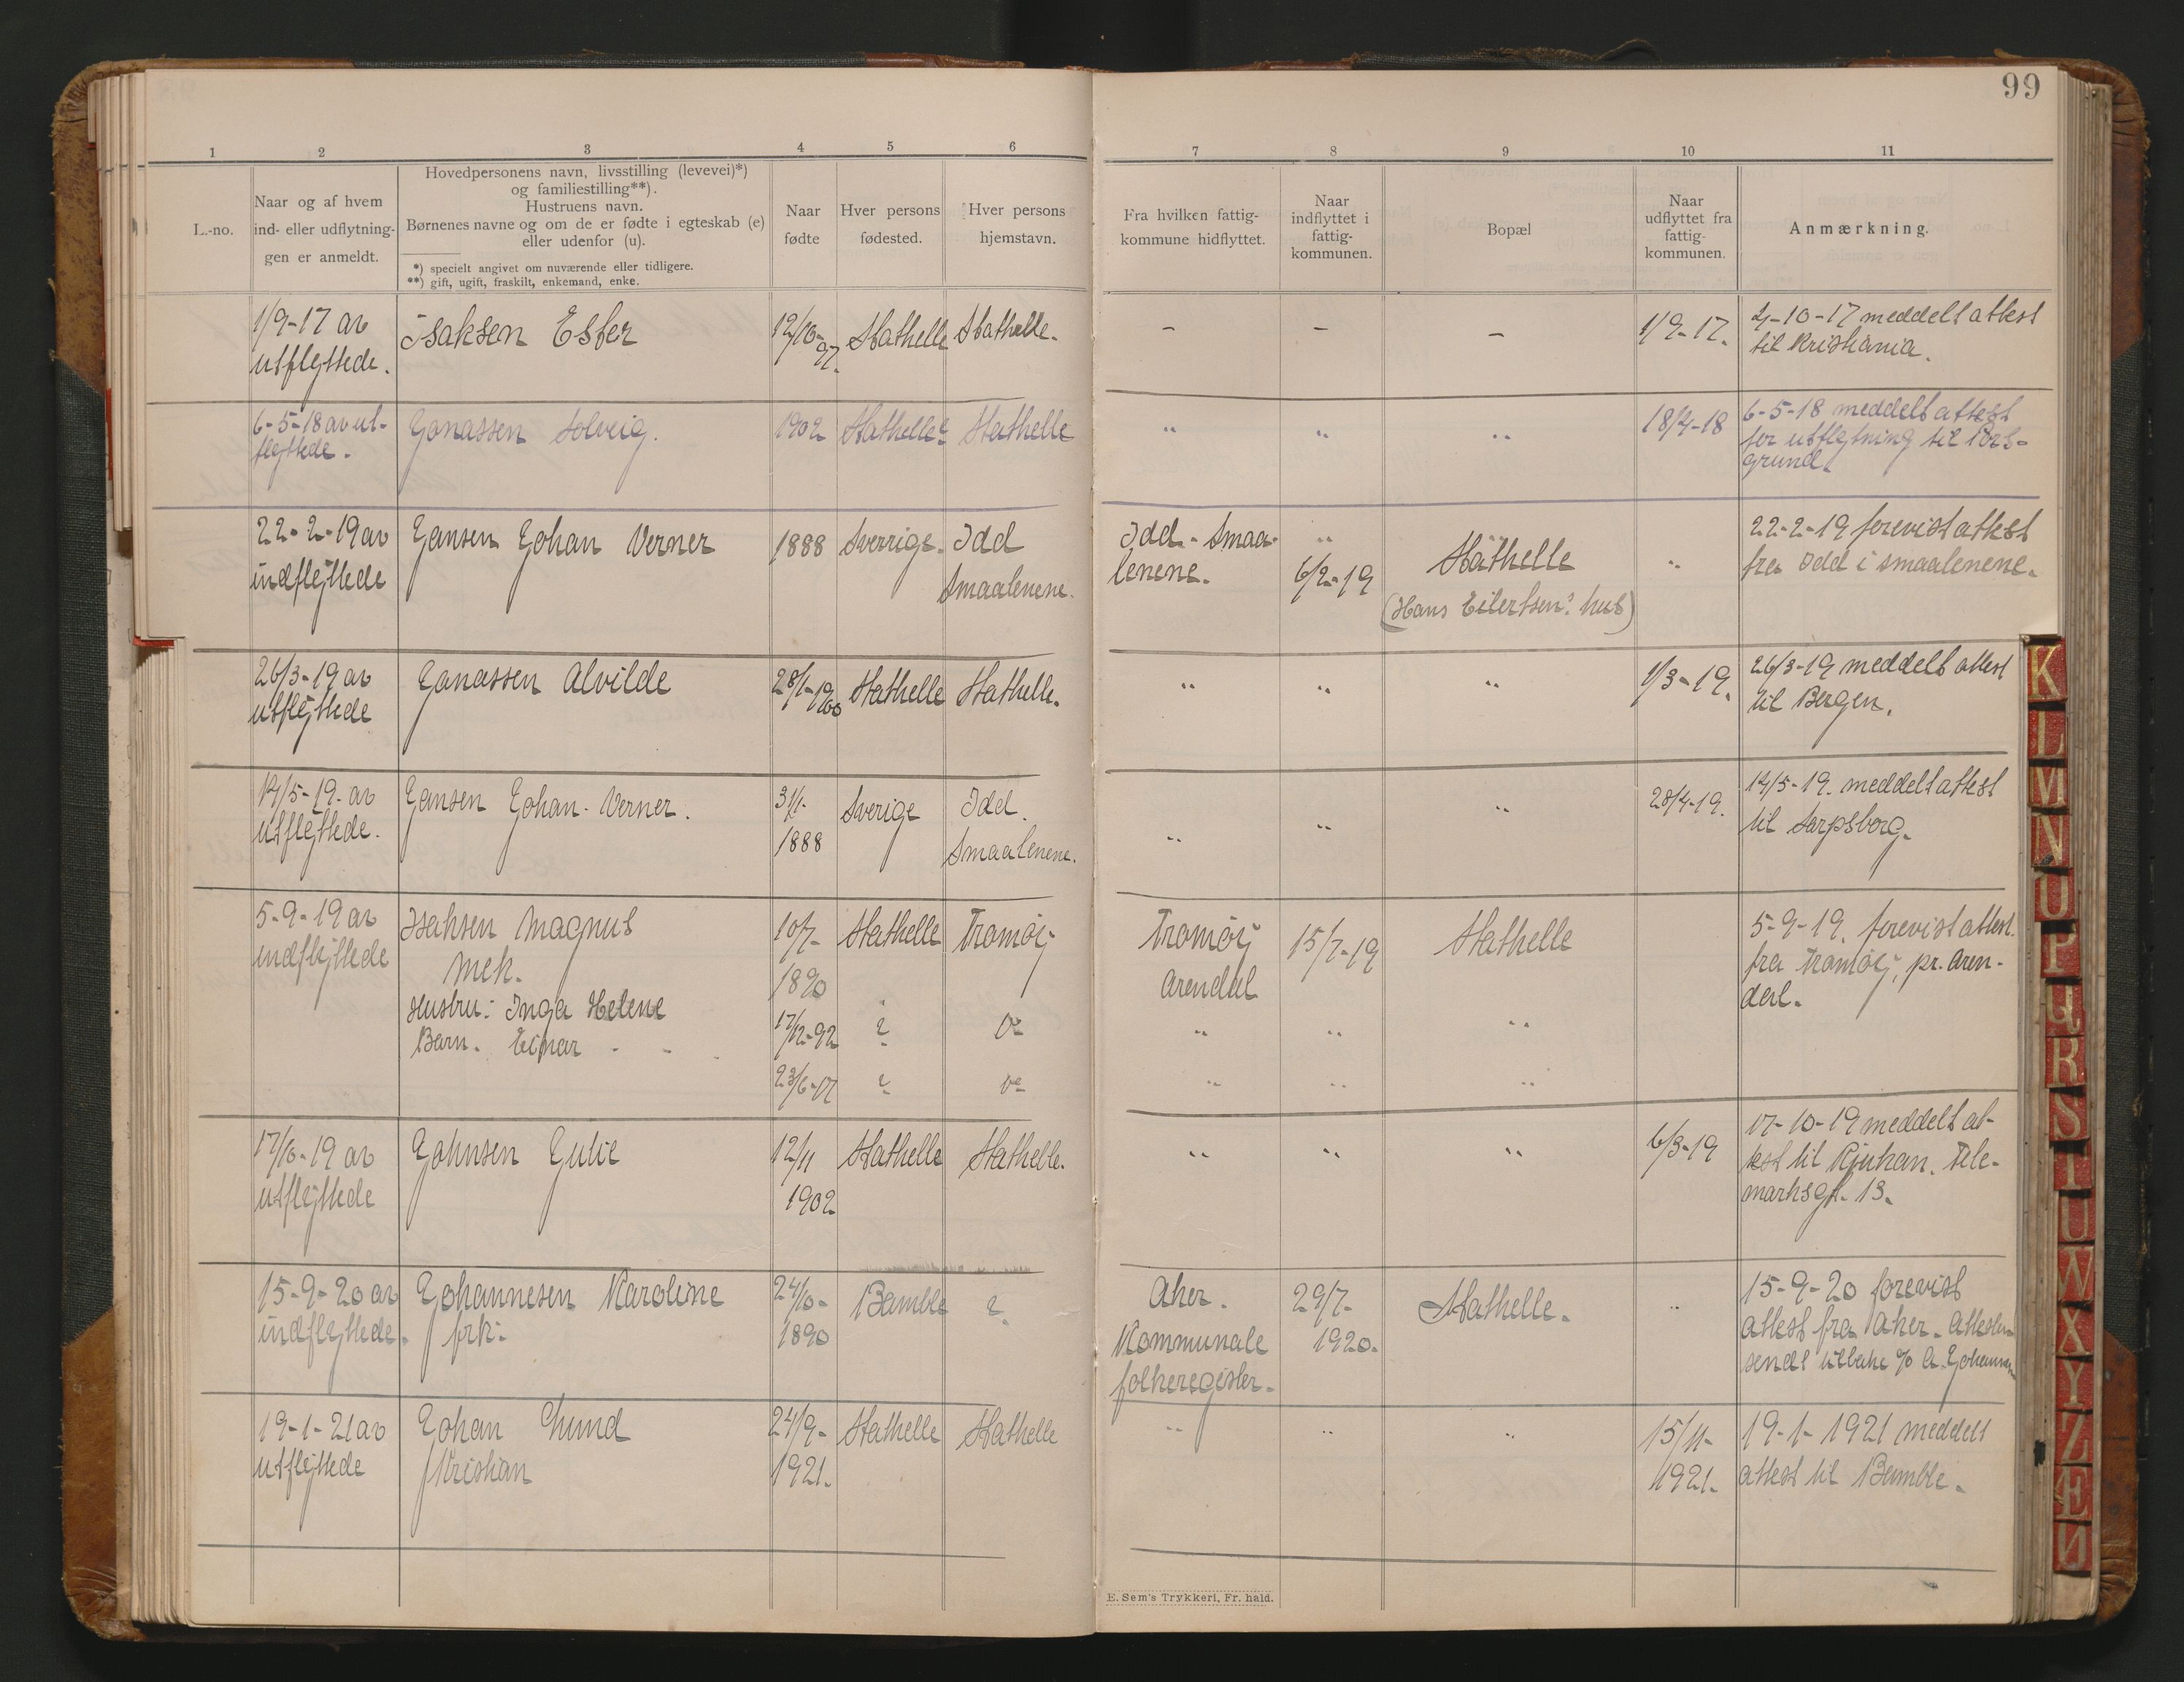 99
1 2 3 4 5 6 7 8 9 10 11
L.-no.
Naar og af hvem
ind- eller udflytning-
gen er anmeldt.
Hovedpersonens navn, livsstilling (levevei)*)
og familiestilling**).
Hustruens navn.
Børnenes navne og om de er fødte i egteskab (e)
eller udenfor (u).
*) specielt angivet om nuværende eller tidligere.
**) gift, ugift, fraskilt, enkemand, enke.
Naar
fødte
Hver persons
fødested.
Hver persons
hjemstavn.
Fra hvilken fattig-
kommune hidflyttet.
Naar
indflyttet i
fattig-
kommunen.
Bopæl
Naar
udflyttet fra
fattig-
kommunen.
Anmærkning.
1/9-17 av
utflyttede.
Isaksen Ester
12/10-97.
Stathelle
Stathelle.
- - -
1/9-17.
4-10-17 meddelt attest
til Kristiania.
6-5-18 av ut-
flyttede.
Jonassen Solveig.
1902
Stathelle
Stathelle
" " "
18/4-18
6-5-18 meddelt attest
for utflytning til Pors-
grund.
22-2-19 av
indflyttede
Jansen Johan Verner
1888
Sverrige.
Idd
Smaalenene.
Idd - Smaa-
lenene.
"
6/2-19
Stathelle
(Hans Eilertsens hus)
"
22-2-19 forevist attest
fra Idd i smaalenene.
26/3-19 av
utflyttede
Jonassen Alvilde
28/1-1900
Stathelle
Stathelle.
" " "
1/3-19.
26/3-19 meddelt attest
til Bergen.
14/5-19. av
utflyttede.
Jansen Johan Verner.
31/1-
1888
Sverige
Idd.
Smaalenene.
" " "
28/4-19.
14/5-19. meddelt attest
til Sarpsborg.
5-9-19 av
indflyttede
Isaksen Magnus
Mek.
Hustru: Inga Helene
Barn. Einar - - -
10/7-
1890
17/12-92
23/6-17
Stathelle
?
?
Tromöy
Do
Do
Tromöy
Arendal
" "
15/7-19
" "
Stathelle
" "
5-9-19. forevist attest.
fra Tromöy, pr. Aren-
dal.
17/10-19 av
utflyttede
Johnsen Julie
12/11
1902
Stathelle
Stathelle.
" " "
6/3-19
17-10-19 meddelt at-
test til Rjukan. Tele-
marksgt. 13.
15-9-20 av
indflyttede.
Johannesen Karoline
frk:
24/10-
1890
Bamble
?
Aker.
Kommunale
folkeregister.
29/7-
1920.
Stathelle.
"
15-9-20 forevist
attest fra Aker. Attesten
sendt tilbake c/o A. Johannesen
19-1-21 av
utflyttede
Johan Lund
Kristian
24/9-
1921.
Stathelle
Stathelle
" " "
15/11-
1921.
19-1-1921 meddelt
attest til Bamble.
E. Sem's Trykkeri, Fr. hald.
K
L
M
N
O
P
Q
R
S
T
U
W
X
Y
Z
Æ